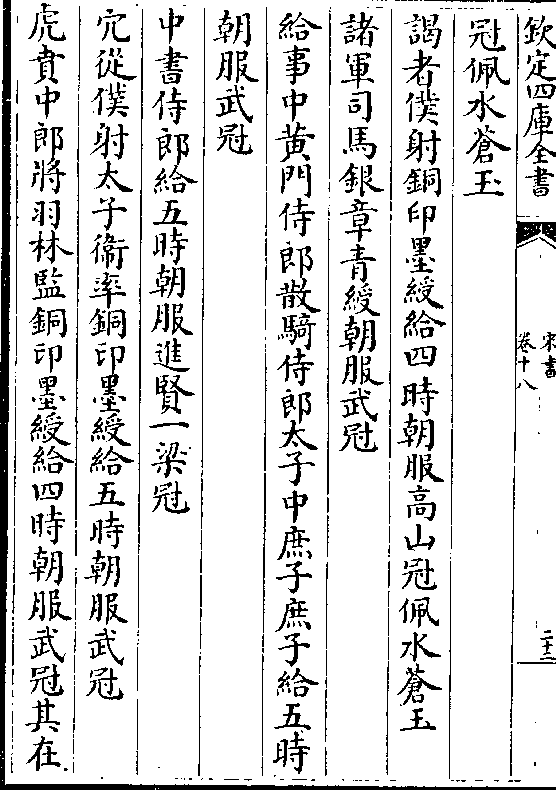 欽定四庫全書
宋書
卷十八
二十三
冠佩水蒼玉
謁者僕射銅印墨綬給四時朝服髙山冠佩水蒼玉
諸軍司馬銀章青綬朝服武冠
給事中黄門侍郎散騎侍郎太子中庶子庶子給五時
朝服武冠
中書侍郎給五時朝服進賢一梁冠
冗從僕射太子衛率銅印墨綬給五時朝服武冠
虎賁中郎將羽林監銅印墨綬給四時朝服武冠其在